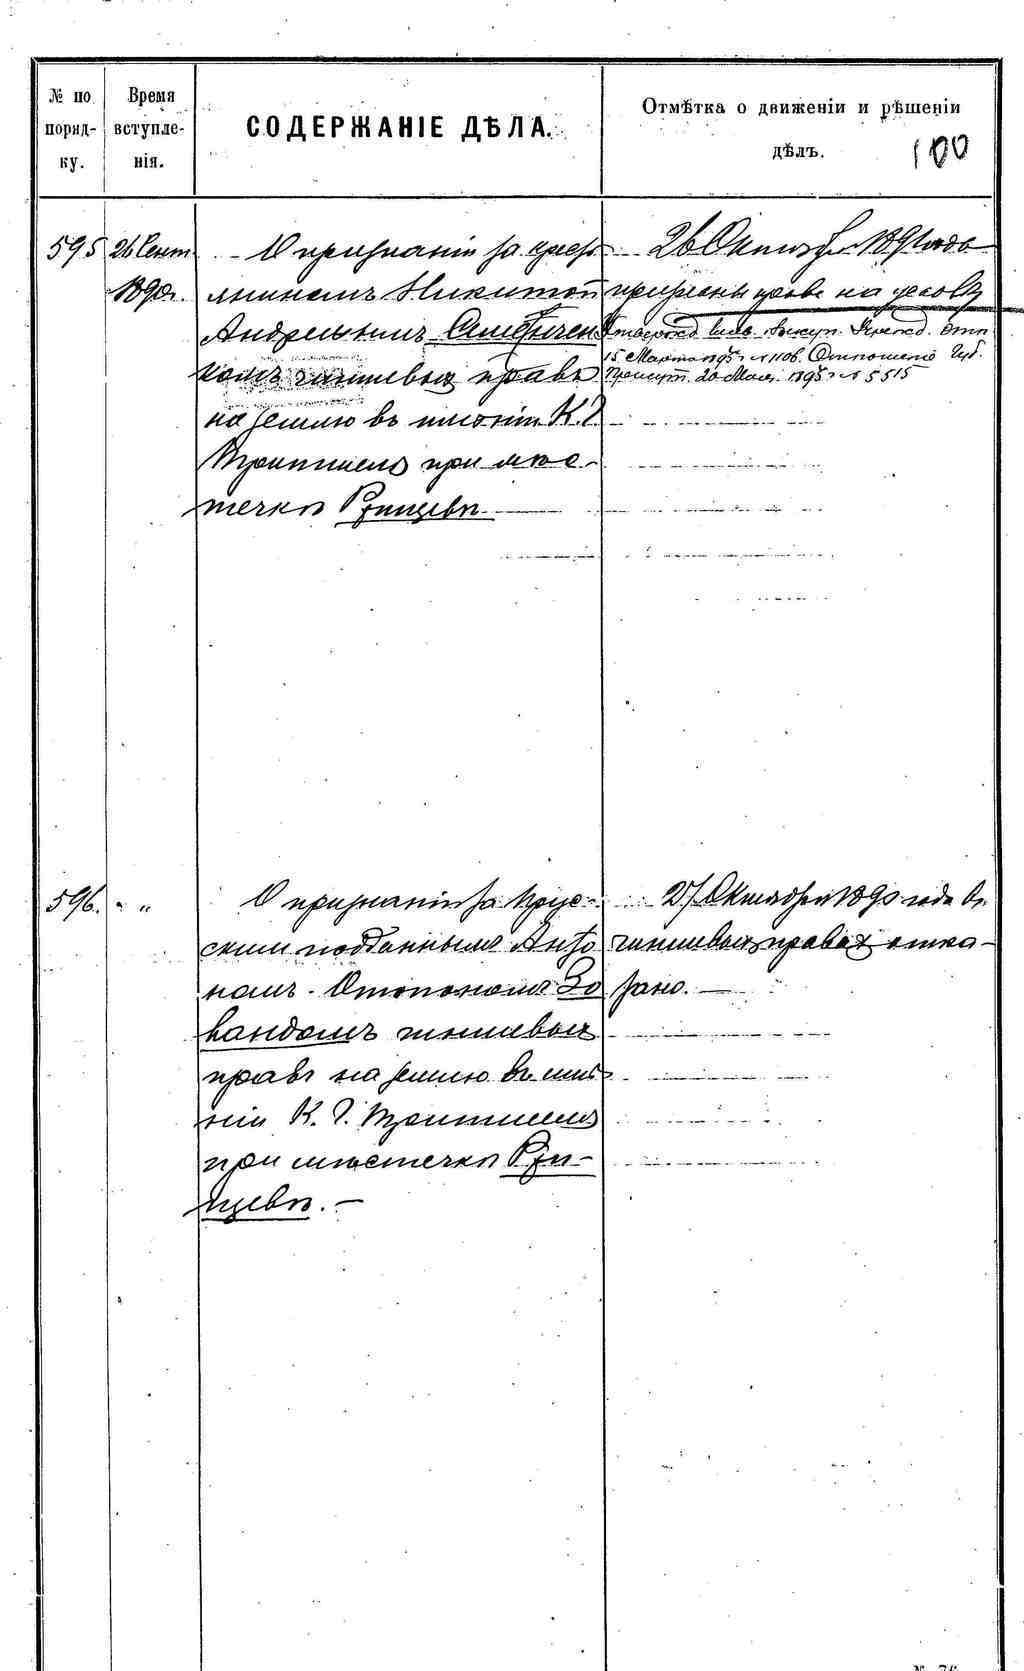 № по поряд- ку.
Время вступле- нія.
СОДЕРЖАНІЕ ДѢЛА.
Отмѣтка о движеніи и рѣшеніи дѣлъ.
100
595
26 Сент. 1890 г.
О признаніи за кресть-
яниномъ Никитой
Андреевымъ
комъ чиншевыхъ правъ
на землю въ имѣніи К. Г.
при мѣс-
течкѣ Ржищевѣ
26 Октября 1891 года
признаны права на усадьбу
15 Марта 1895 г. № 1106. Отношеніе Губ.
Присут. 20 Мая 1895 г. № 5515
596.
" "
О признаніи за Прус-
скимъ подданнымъ Анто
номъ
вандомъ чиншевыхъ
правъ на землю въ имѣ-
ніи К. Г.
при мѣстечкѣ Ржи-
щевѣ. —
27 Октября 1890 года въ
чиншевыхъ правахъ отка-
зано. —